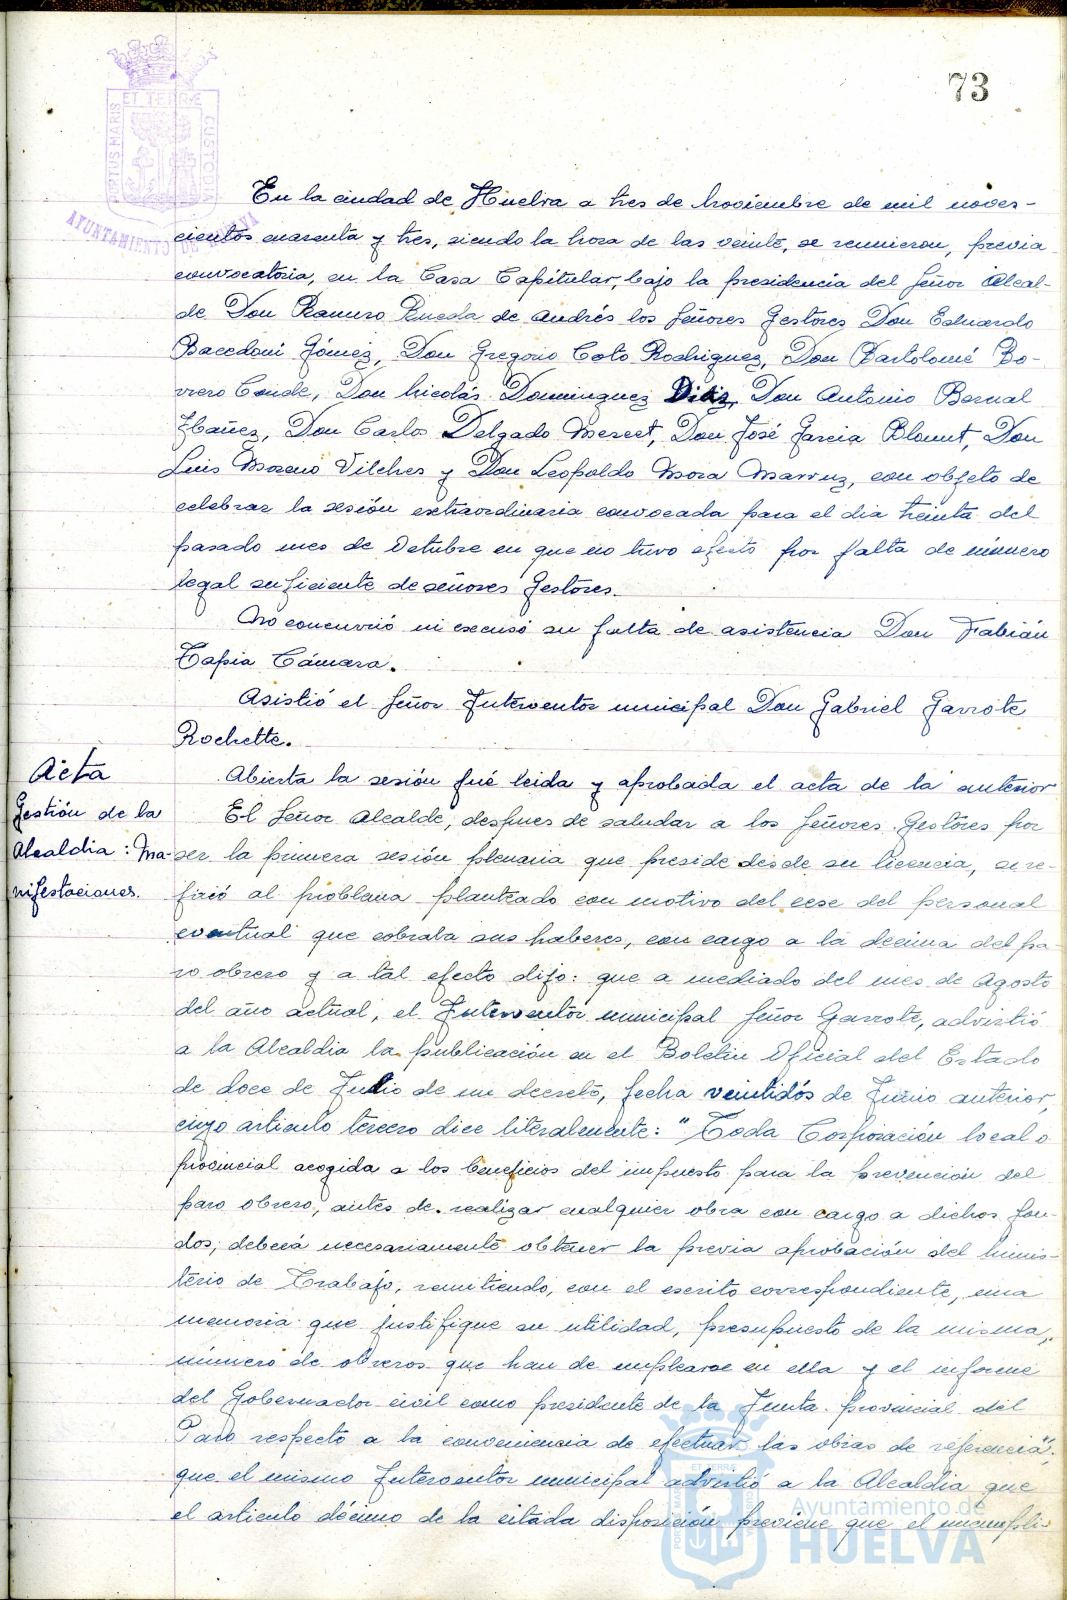 73
PORTUS MARIS ET TERRÆ CUSTODIA
AYUNTAMIENTO DE HUELVA
En la ciudad de Huelva a tres de Noviembre de mil nover-
cientos cuarenta y tres, siendo la hora de las veinte, se reunieron, previa
convocatoria, en la Casa Capitular, bajo la presidencia del Señor Alcal-
de Don Ramiro Rueda de Andrés los Señores Gestores Don Eduardo
Bacedoni Gómez, Don Gregorio Coto Rodriguez, Don Bartolomé Bo-
rrero Conde, Don Nicolás Dominguez Diaz, Don Antonio Bernal
Ibañez, Don Carlos Delgado Mercet, Don José Garcia Blount, Don
Luis Moreno Vilches y Don Leopoldo Mora Marruz, con objeto de
celebrar la sesión extraordinaria convocada para el dia treinta del
pasado mes de Octubre en que no tuvo efecto por falta de número
legal suficiente de señores Gestores.
No concurrió ni excusó su falta de asistencia Don Fabián
Tapia Cámara.
Asistió el Señor Interventor municipal Don Gabriel Garrote
Rochette.
Acta
Abierta la sesión fué leida y aprobada el acta de la anterior
Gestión de la
Alcaldia: Ma-
nifestaciones.
El Señor Alcalde, despues de saludar a los Señores Gestores por
ser la primera sesión plenaria que preside desde su licencia, se re-
firió al problema planteado con motivo del cese del personal
eventual que cobraba sus haberes, con cargo a la decima del pa-
ro obrero y a tal efecto dijo: que a mediado del mes de Agosto
del año actual, el Interventor municipal Señor Garrote, advirtió
a la Alcaldia la publicación en el Boletin Oficial del Estado
de doce de Julio de un decreto, fecha veintidós de Junio anterior,
cuyo articulo tercero dice literalmente: "Toda Corporación local o
provincial acogida a los beneficios del impuesto para la prevención del
paro obrero, antes de realizar cualquier obra con cargo a dichos fon-
dos, deberá necesariamente obtener la previa aprobación del Minis-
terio de Trabajo, remitiendo, con el escrito correspondiente, una
memoria que justifique su utilidad, presupuesto de la misma,
número de obreros que han de emplearse en ella y el informe
del Gobernador civil como presidente de la Junta provincial del
Paro respecto a la conveniencia de efectuar las obras de referencia";
que el mismo Interventor municipal advirtió a la Alcaldia que
el articulo décimo de la citada disposición previene que el incumpli-
Ayuntamiento de
HUELVA